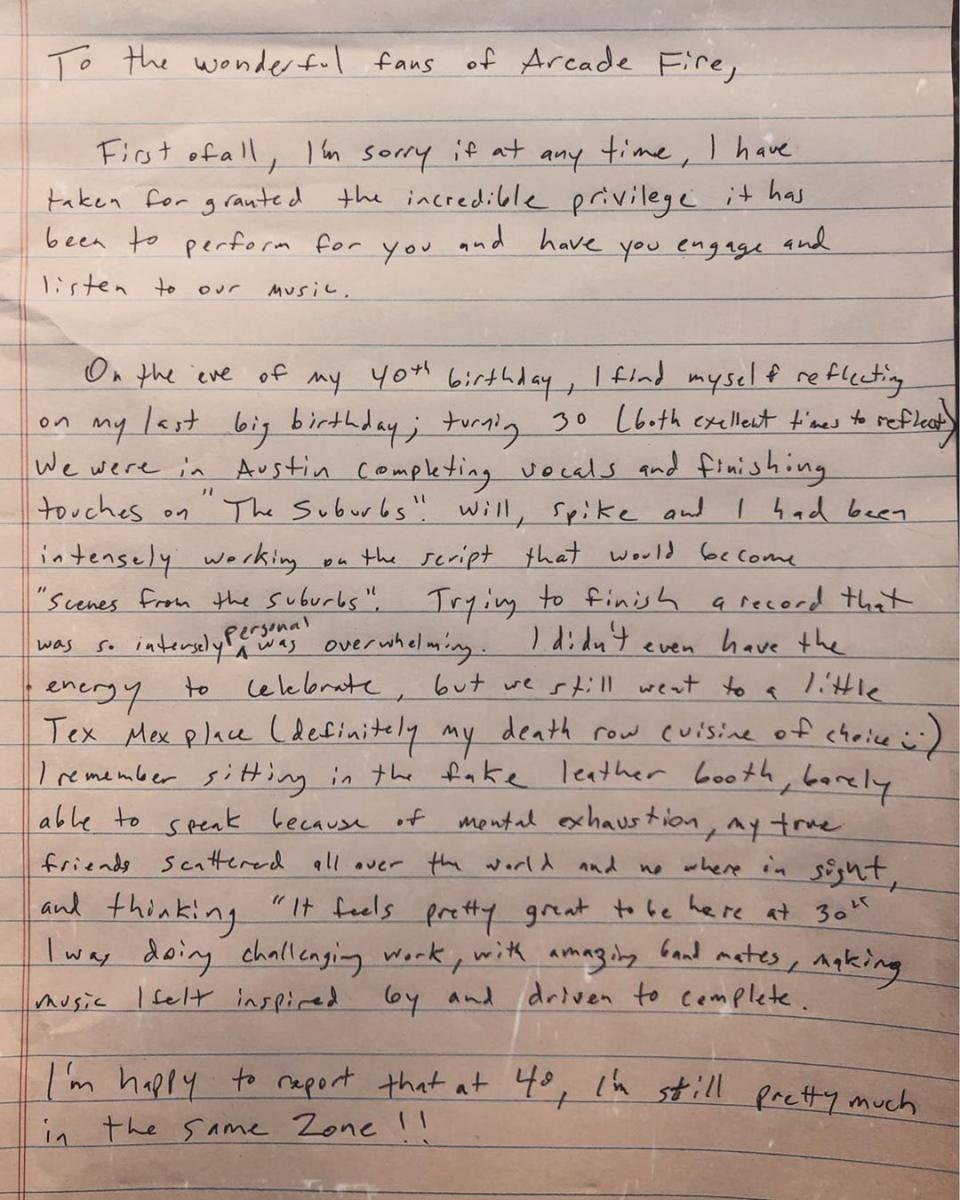 To the wonderful fans of Arcade Fire,
First of all, I'm sorry if at any time, I have
taken for granted the incredible privilege it has
been to perform for you and have you engage and
listen to our music.
On the eve of my 40th birthday, I find myself reflecting
on my last big birthday; turning 30 (both exellent times to reflect)
We were in Austin completing vocals and finishing
touches on "The Suburbs". Will, Spike and I had been
intensely working on the script that would become
"Scenes from the suburbs". Trying to finish a record that
was so intensely personal was overwhelming. I didn't even have the
energy to celebrate, but we still went to a little
Tex Mex place (definitely my death row cuisine of choice :))
I remember sitting in the fake leather booth, barely
able to speak because of mental exhaustion, my true
friends scattered all over the world and no where in sight,
and thinking "It feels pretty great to be here at 30"
I was doing challenging work, with amazing band mates, making
music I felt inspired by and driven to complete.
I'm happy to report that at 40, I'm still pretty much
in the same zone!!